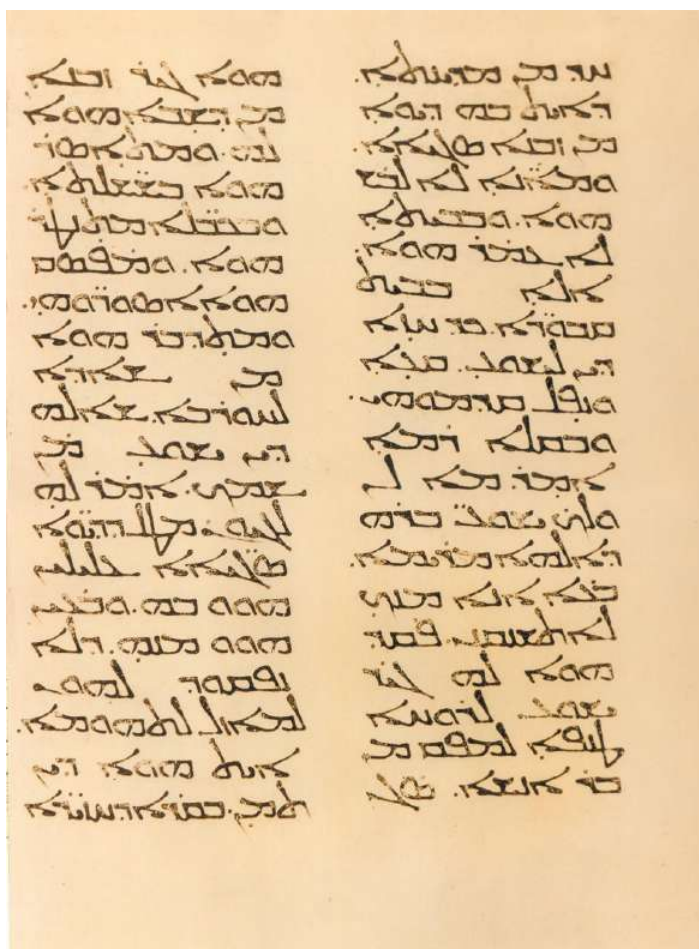 ܚܕ ܡܢ ܡܕܝܢܬܐ.
ܕܐܝܬ ܒܗ ܕܝܘܐ
ܡܢ ܙܒܢܐ ܣܓܝܐܐ.
ܘܡܐܢ̈ܐ ܠܐ ܠܒܫ
ܗܘܐ. ܘܒܒܝܬܐ
ܠܐ ܥܡܪ ܗܘܐ.
ܐܠܐ ܒܒܝܬ
ܩܒܘܪ̈ܐ. ܟܕ ܚܙܐ
ܕܝܢ ܠܝܫܘܥ. ܩܥܐ
ܘܢܦܠ ܩܕܡܘܗܝ.
ܘܒܩܠܐ ܪܡܐ
ܐܡܪ. ܡܐ ܠܢ
ܘܠܟ ܝܫܘܥ ܒܪܗ
ܕܐܠܗܐ ܡܪܝܡܐ.
ܒܥܐ ܐܢܐ ܡܢܟ
ܠܐ ܬܫܢܩܝ. ܦܩܕ
ܗܘܐ ܠܗ ܓܝܪ
ܝܫܘܥ ܠܪܘܚܐ
ܛܢܦܐ ܠܡܦܩ ܡܢ
ܒܪ ܐܢܫܐ. ܣܓܝ
ܗܘܐ ܓܝܪ ܙܒܢܐ
ܡܢ ܕܫܒܝܐ ܗܘܐ
ܠܗ. ܘܡܬܐܣܪ
ܗܘܐ ܒܫܫ̈ܠܬܐ.
ܘܒܟܒ̈ܠܐ ܡܬܢܛܪ
ܗܘܐ. ܘܡܦܣܩ
ܗܘܐ ܐܣܘܪ̈ܘܗܝ.
ܘܡܬܕܒܪ ܗܘܐ
ܡܢ ܫܐܕܐ
ܠܚܘܪܒܐ. ܫܐܠܗ
ܕܝܢ ܝܫܘܥ ܡܢ
ܫܡܟ. ܐܡܪ ܠܗ
ܠܓܝܘܢ ܡܛܠ ܕܕܝ̈ܘܐ
ܣܓܝ̈ܐܐ ܥܠܝܠܝܢ
ܗܘܘ ܒܗ. ܘܒܥܝܢ
ܗܘܘ ܡܢܗ. ܕܠܐ
ܢܦܩܘܕ ܠܗܘܢ
ܠܡܐܙܠ ܠܬܗܘܡܐ.
ܐܝܬ ܗܘܐ ܕܝܢ
ܬܡܢ. ܒܩܪܐ ܕܚܙܝܪ̈ܐ